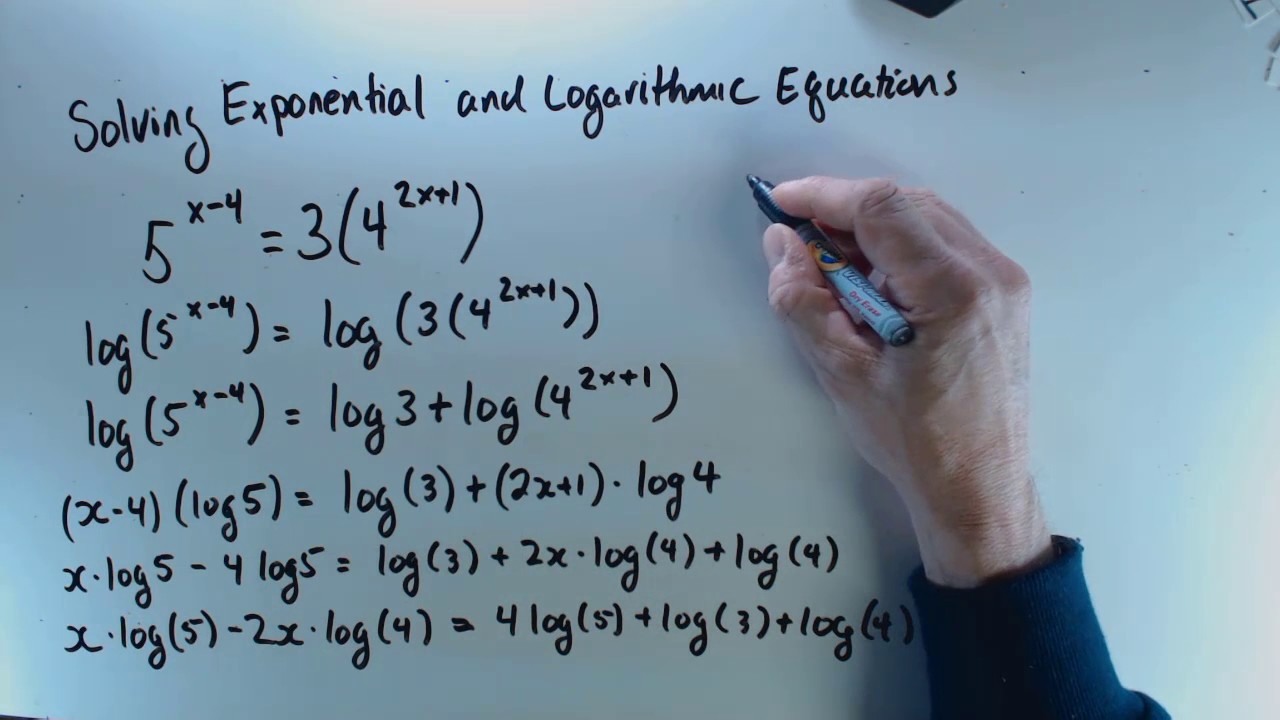 Solving Exponential and Logarithmic Equations
5^{x-4} = 3(4^{2x+1})
log(5^{x-4}) = log(3(4^{2x+1}))
log(5^{x-4}) = log 3 + log(4^{2x+1})
(x-4)(log 5) = log(3) + (2x+1) · log 4
x · log 5 - 4 log 5 = log(3) + 2x · log(4) + log(4)
x · log(5) - 2x · log(4) = 4 log(5) + log(3) + log(4)
Dry Erase